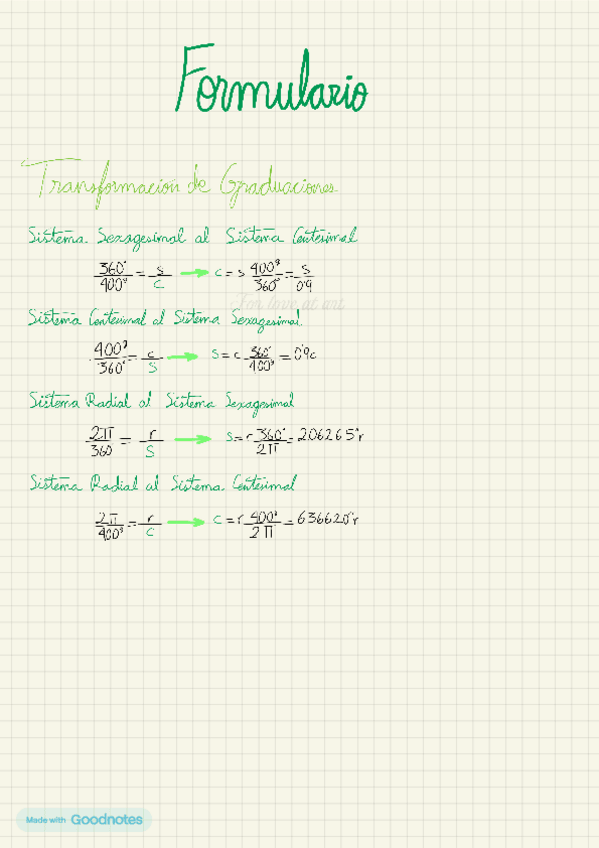 Formulario
Transformación de Graduaciones
Sistema Sexagesimal al Sistema Centesimal
360°/400ᵍ = s/c → c = s 400ᵍ/360° = s/0'9
For love at art
Sistema Centesimal al Sistema Sexagesimal
400ᵍ/360° = c/s → s = c 360°/400ᵍ = 0'9c
Sistema Radial al Sistema Sexagesimal
2π/360 = r/s → s = r 360°/2π = 206265"r
Sistema Radial al Sistema Centesimal
2π/400ᵍ = r/c → c = r 400ᵍ/2π = 636620"r
Made with Goodnotes